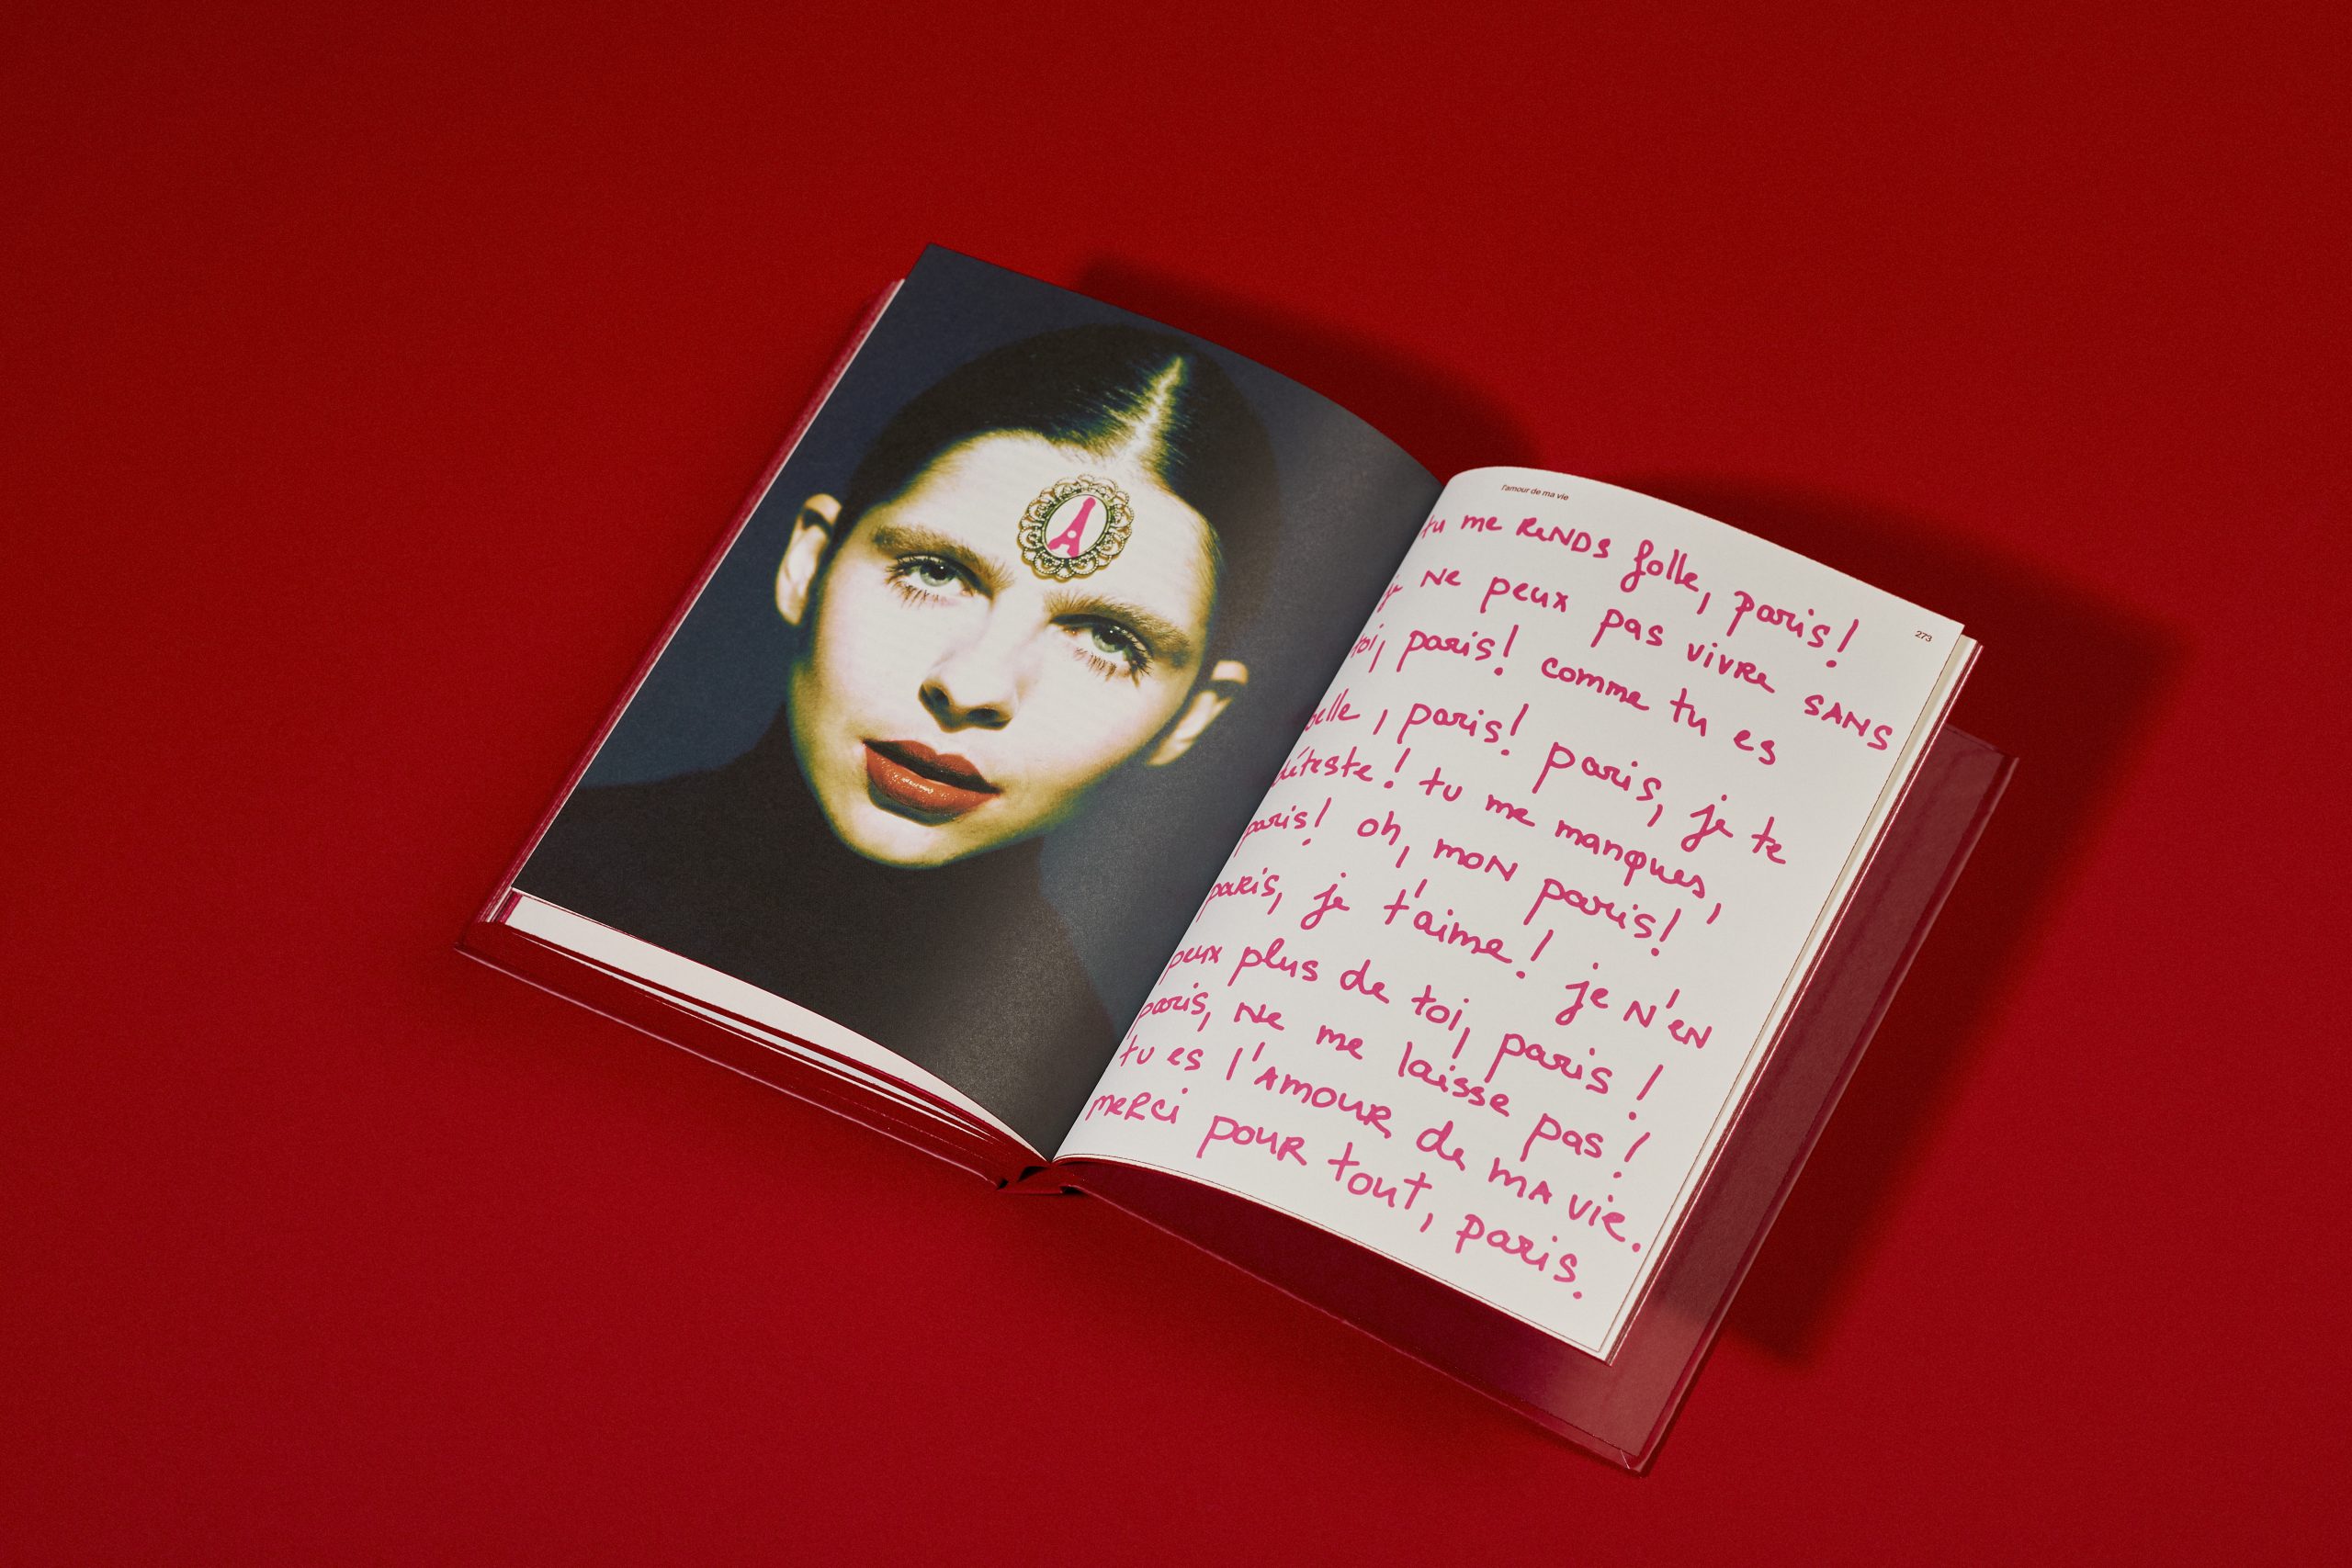 l'amour de ma vie
273
tu me RENDS folle, paris!
je NE peux pas vivre SANS
toi, paris! comme tu es
belle, paris! paris, je te
déteste! tu me manques,
paris! oh, mon paris!
paris, je t'aime! je N'EN
peux plus de toi, paris!
paris, Ne me laisse pas!
tu es l'AMOUR de MA vie.
MERCi pour tout, paris.